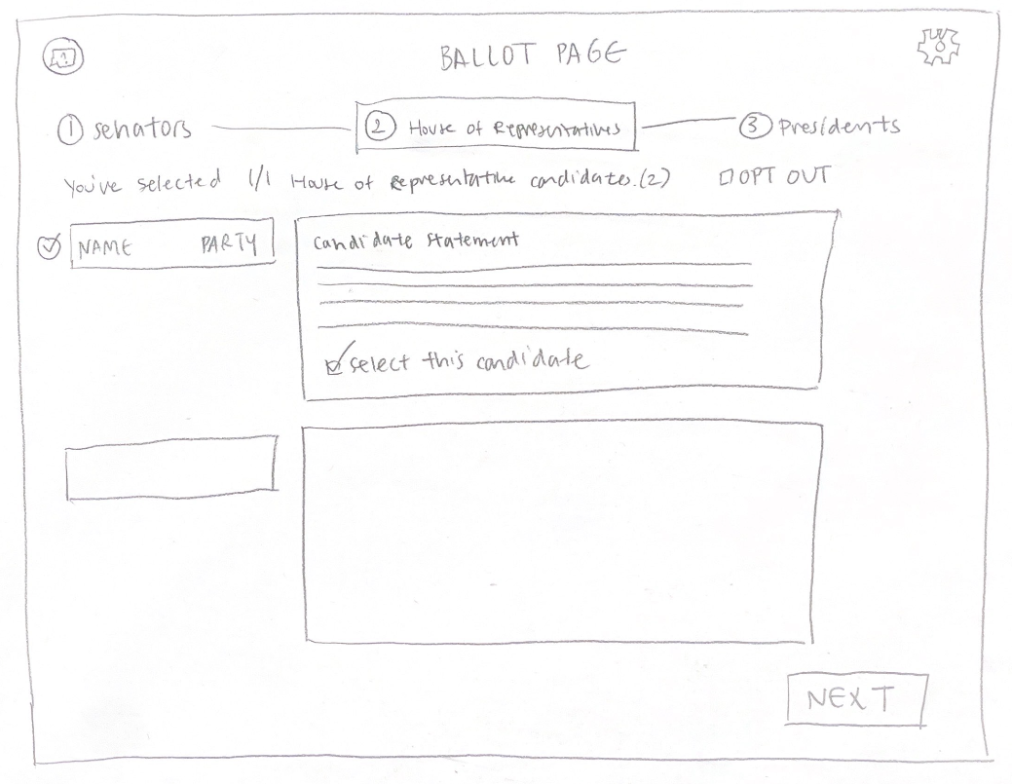 BALLOT PAGE
1 senators 2 House of Representatives 3 Presidents
You've selected 1/1 House of Representative candidates.(2) OPT OUT
NAME PARTY
Candidate statement
select this candidate
NEXT